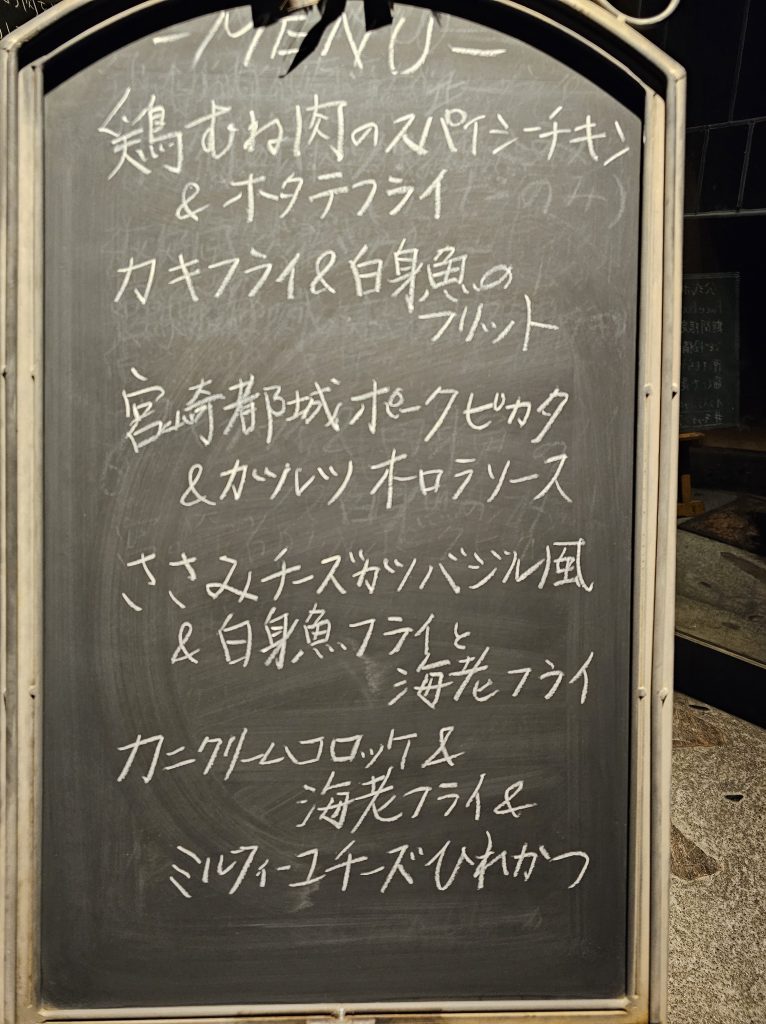 -MENU-
鶏むね肉のスパイシーチキン
& ホタテフライ
カキフライ&白身魚の
フリット
宮崎都城ポークピカタ
&カツレツ オーロラソース
ささみチーズカツバジル風
& 白身魚フライと
海老フライ
カニクリームコロッケ&
海老フライ&
ミルフィーユチーズひれかつ